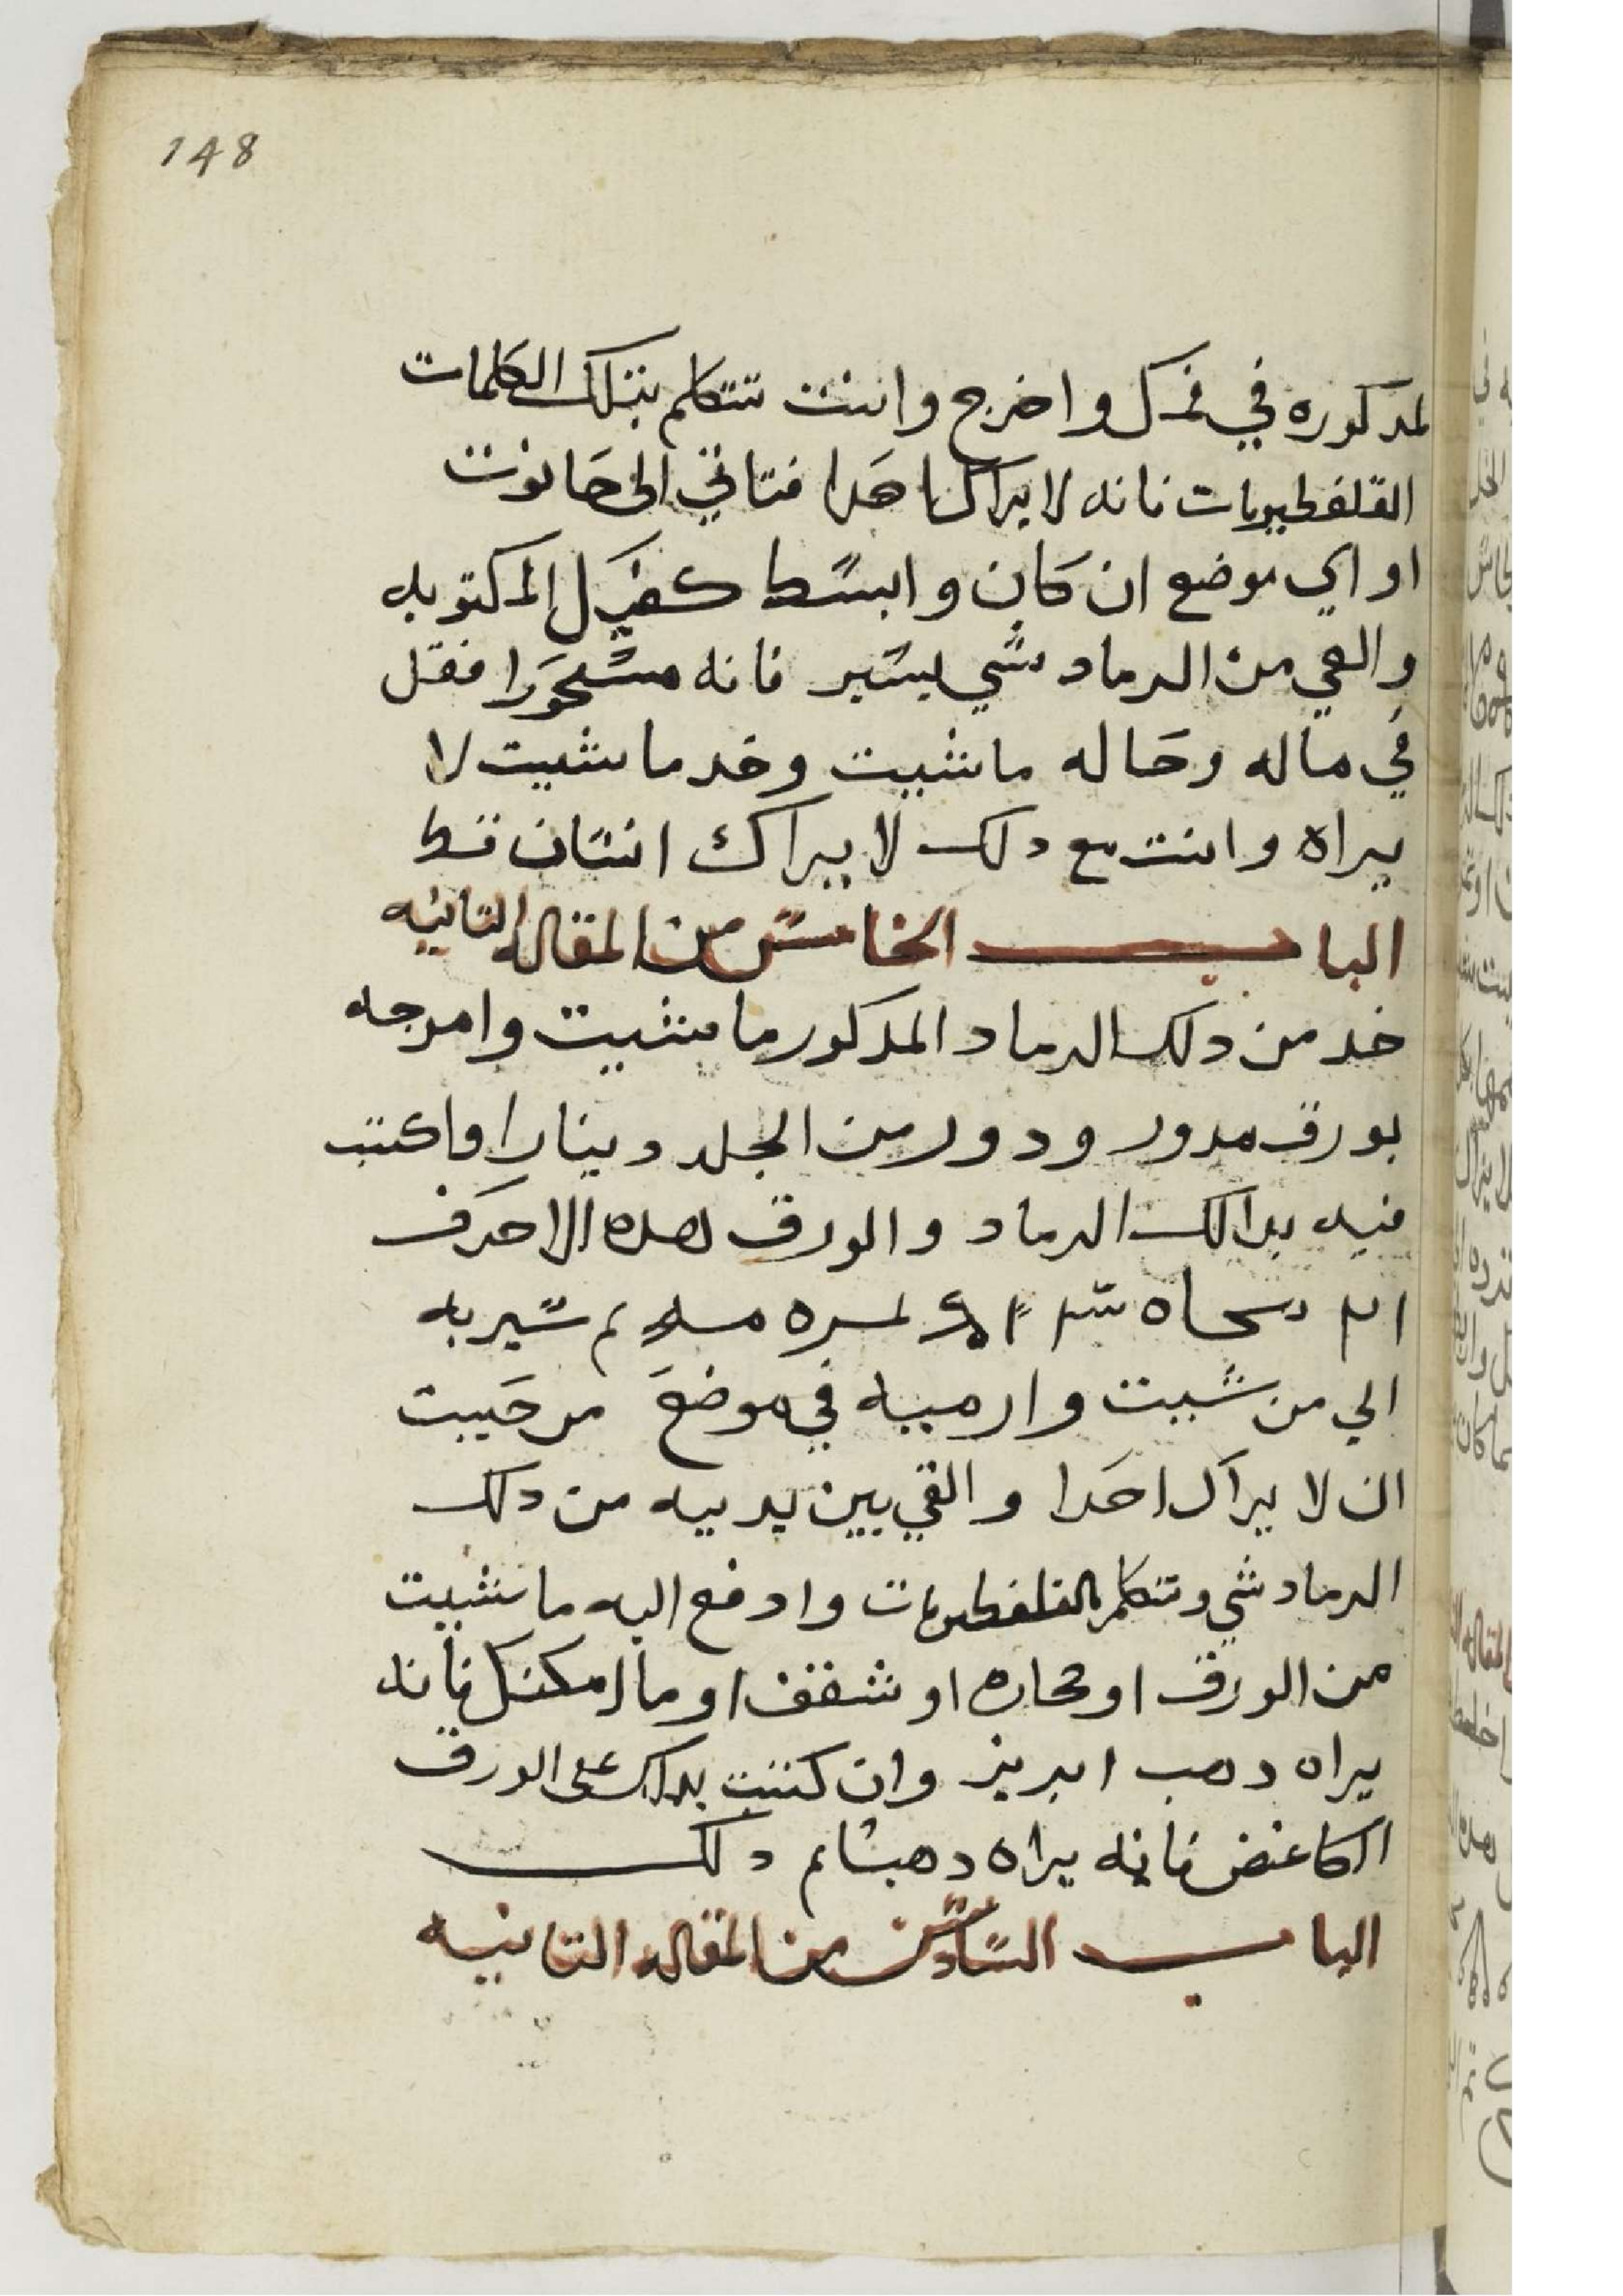 148
لمدكوره في فمك واخرج وانت تتكلم بتلك الكلمات
القلفطيريات فانه لا يراك احدا فتاتي الى حانوت
او اي موضع ان كان وابسط كفك المكتوبه
والقي من الرماد شي يسير فانه مسحورا فقل
في ماله وحاله ما شيت وخد ما شيت لا
يراه وانت مع دلك لا يراك انسان قط
الباب الخامس من المقاله التانيه
خد من دلك الرماد المدكور ما شيت وامرجه
بورق مدور ودور من الجلد دينارا واكتب
فيه بدالك الرماد والورق هده الاحرف
سير به
الي من شيت وارميه في موضع من حيت
ان لا يراك احدا والقي بين يديه من دلك
الرماد شي وتتكلم بالقلفطيريات وادفع اليه ما شيت
من الورق او محاره او شقف او ما امكنك فانه
يراه دهب ابريز وان كتبت بدلك على الورق
الكاغض فانه يراه دهبا تم دلك
الباب السادس من المقاله التانيه